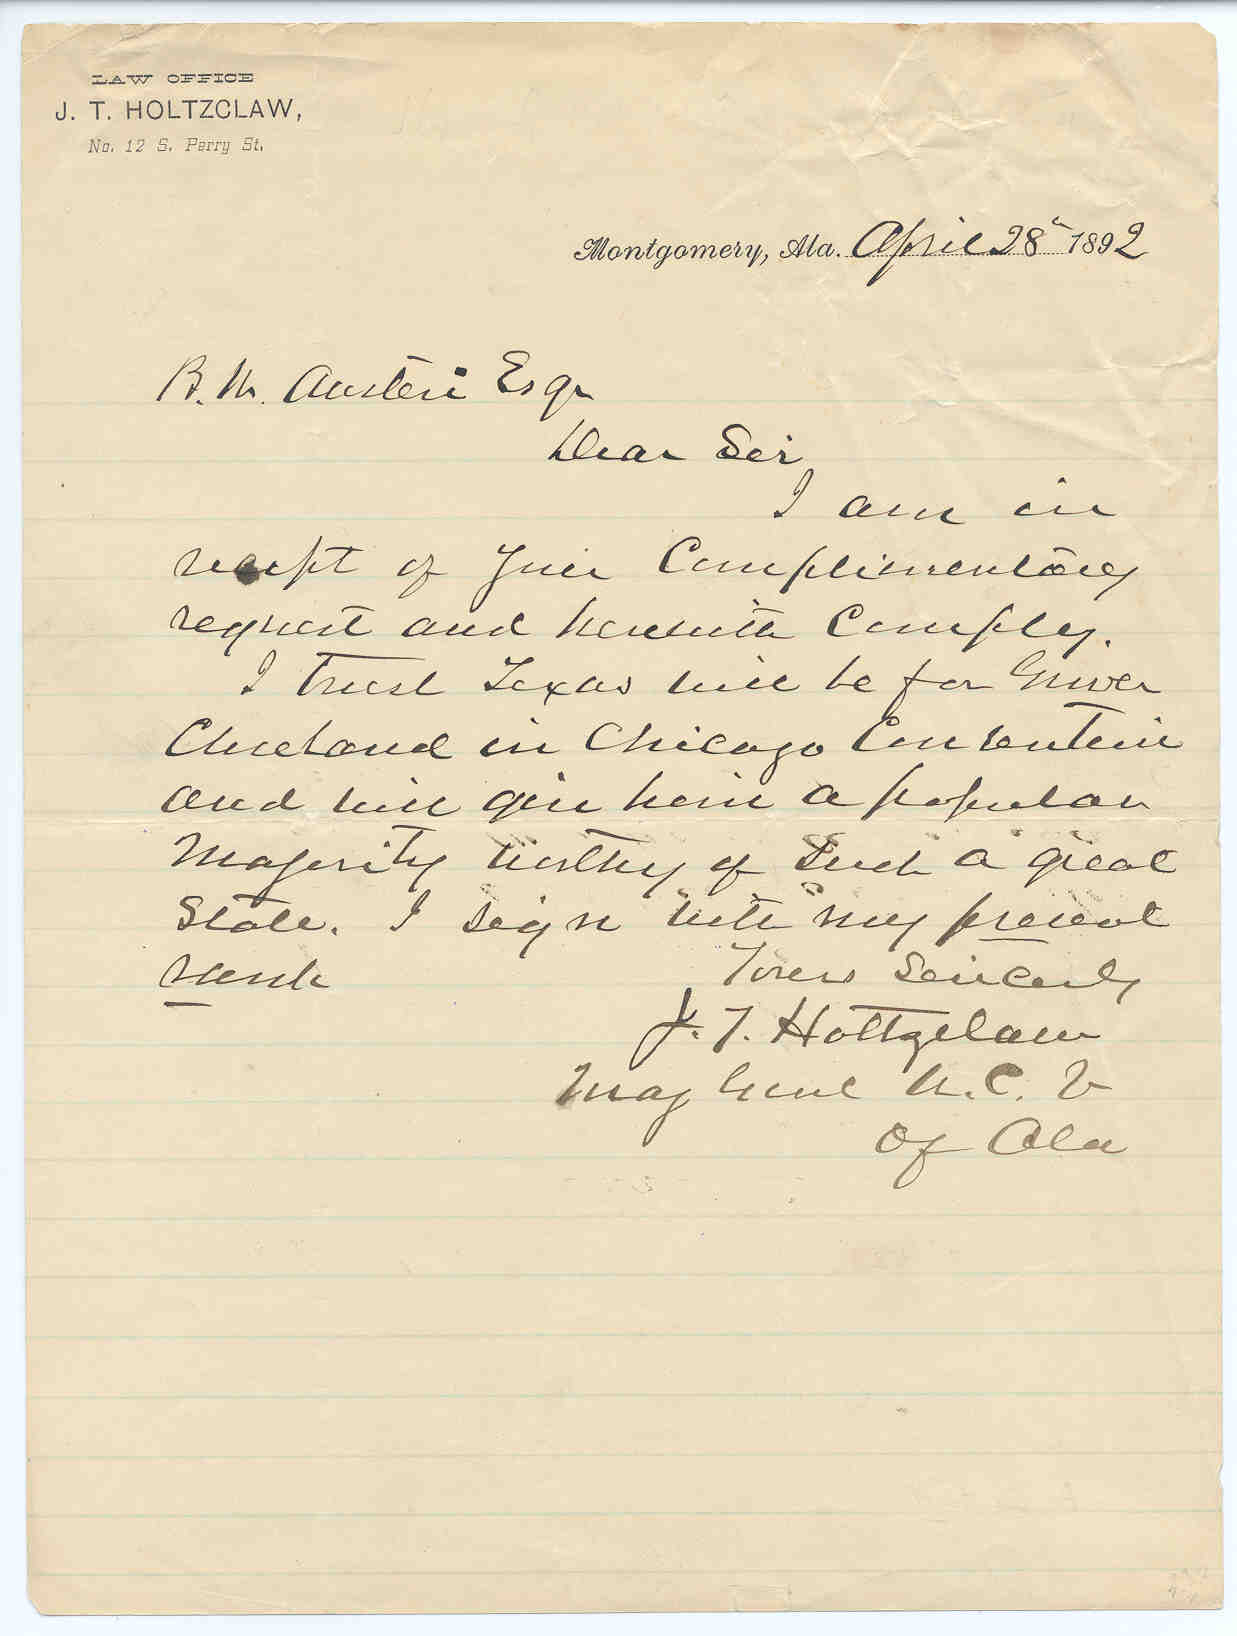 LAW OFFICE
J. T. HOLTZCLAW,
No. 12 S. Perry St.
Montgomery, Ala. April 28th 1892
B. M. Austin Esqr
Dear Sir
I am in
receipt of your Complimentary
request and herewith Comply.
I trust Texas will be for Grover
Cleveland in Chicago Convention
and will give him a popular
Majority worthy of such a great
State. I sign with my present
rank
Yours Sincerely
J. T. Holtzclaw
Maj Genl U. C. V
of Ala